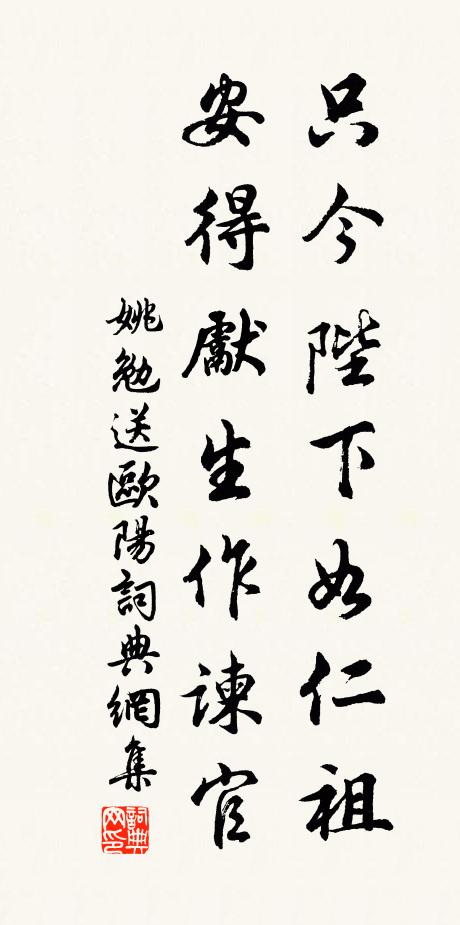 只今陛下如仁祖
安得獻生作諫官
姚勉送歐陽詞典網集
詞典网印